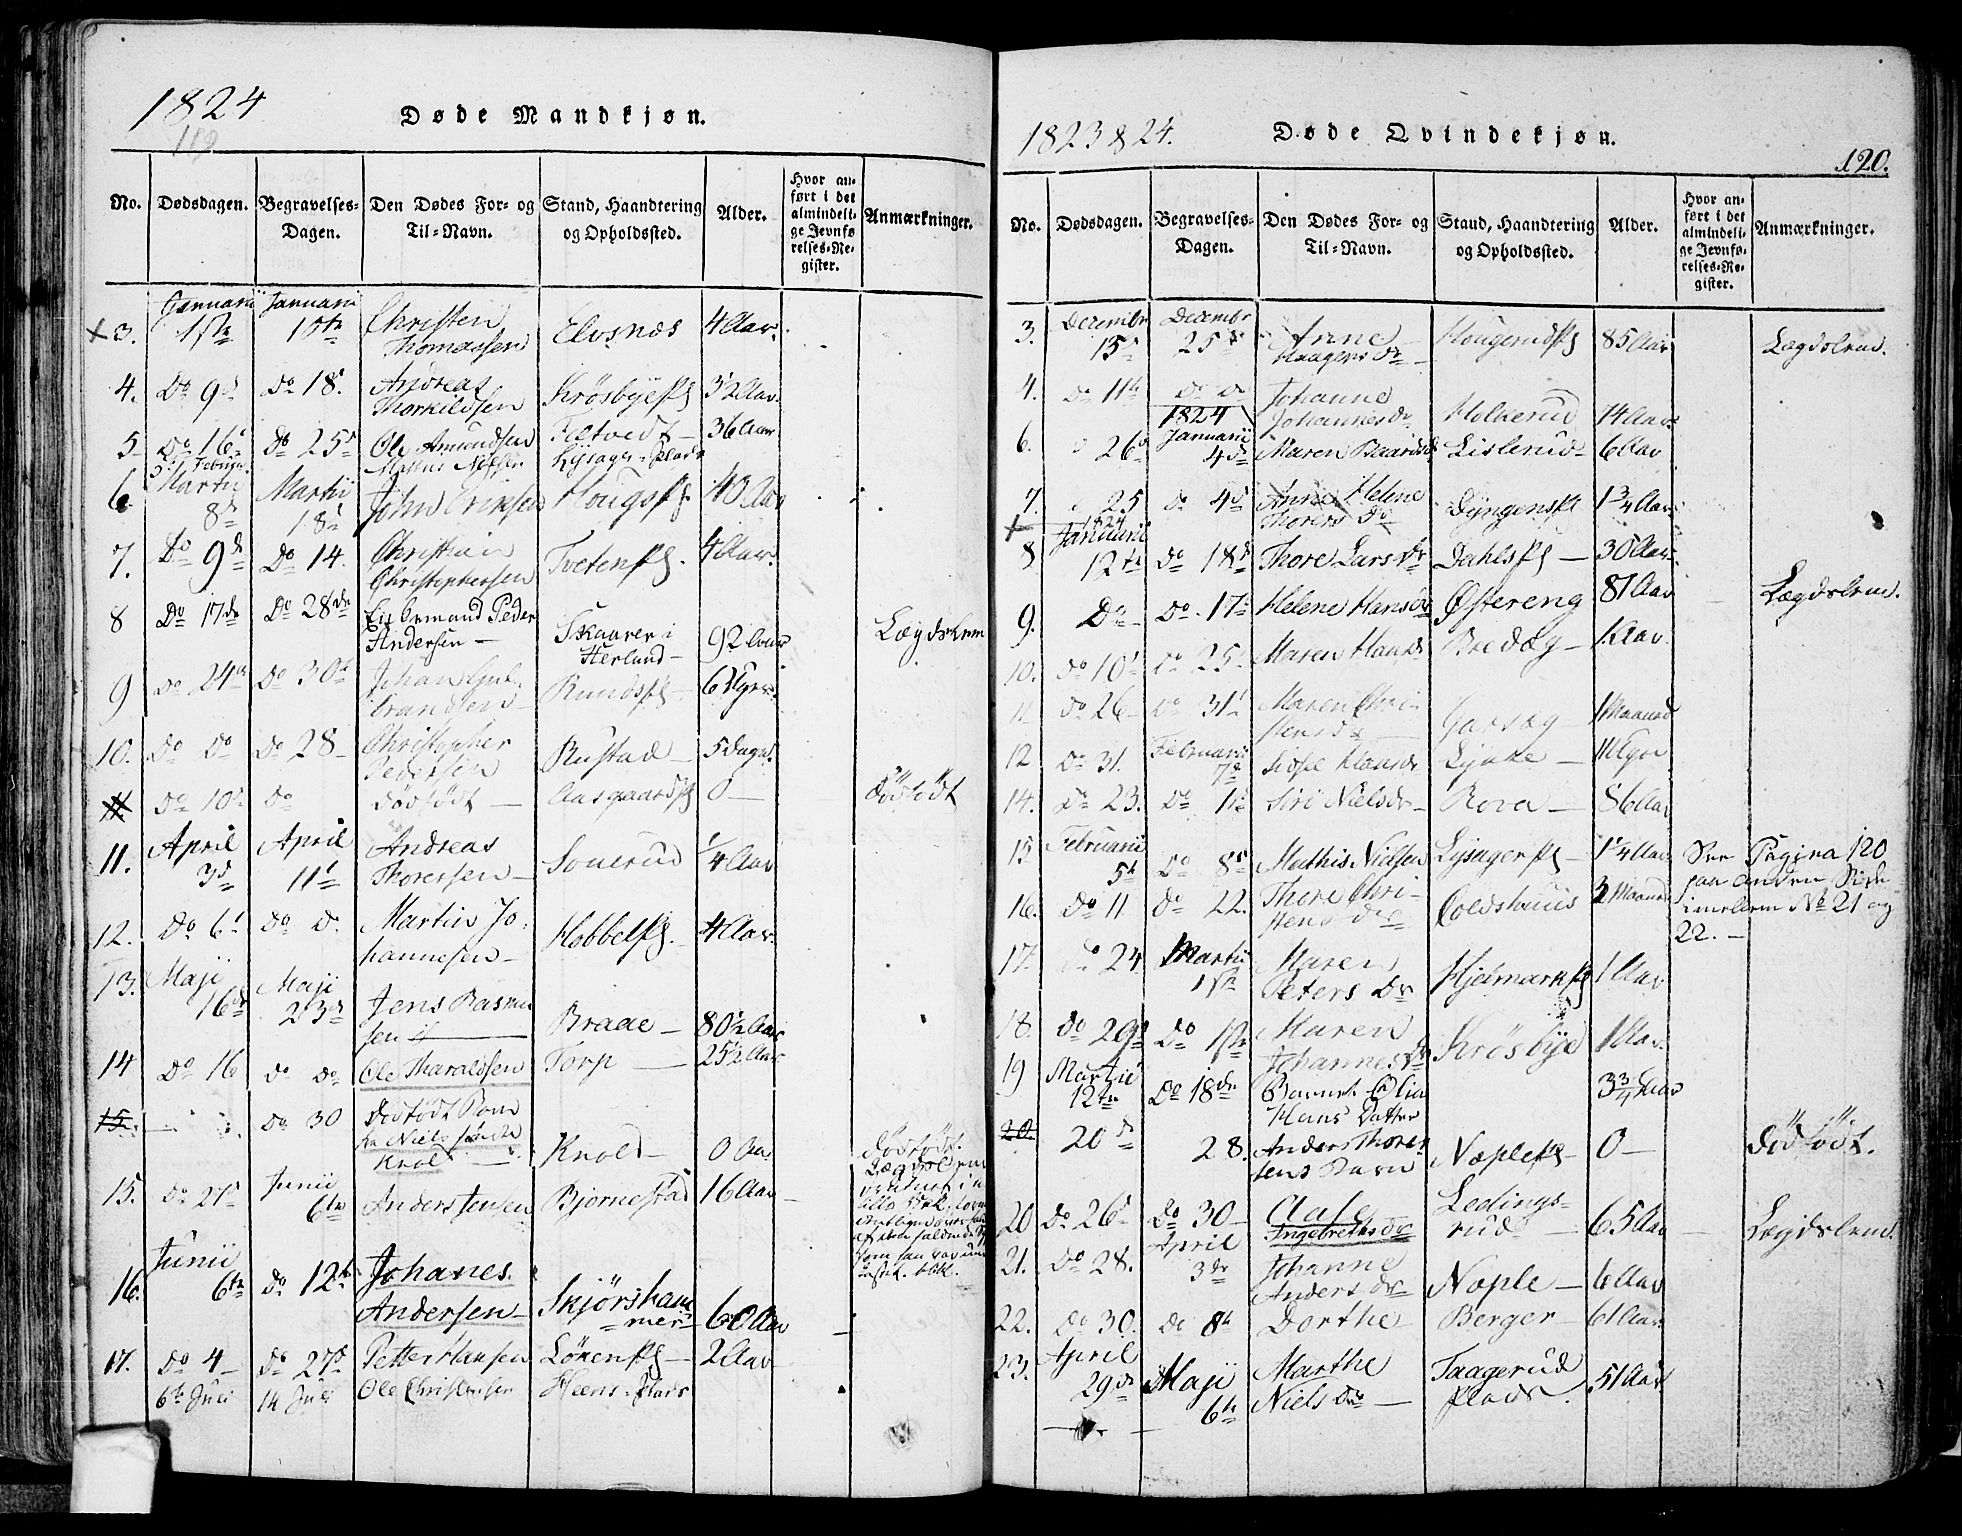 1824
119
Døde Mandkjøn.
No. Dødsdagen. Begravelses-Dagen. Den Dødes For- og Til-Navn. Stand, Haandtering og Opholdssted. Alder. Hvor anført i det almindelige Jevnførelses-Register. Anmærkninger.
3. Januarii 1ste Januarii 10de Christen Thomassen Elvsnæs 4 Aar.
4. Do 9d Do 18. Andreas Thorkildsen Krosbyeplds 3 1/2 Aar.
5 Do 16 Do 25 Ole Amundsen Tvetvedt 36 Aar
Februar Lysager-Plads
6 Martii 8de Martii 18 John Eriksen Hougspl. 40 Aar
7. Do 9d Do 14. Christian Christophersen Tvetenpl. 4 Aar.
8 Do 17de Do 28de Peder Andersen Skaarer i Herland 92 Lægdslem
9 Do 24de Do 30 Johan Gulbrandsen Rundspl. 6 Uger.
10. Do Do Do 28 Christopher Pedersen Rustad 5 Dage.
11. Do 10 Do dödfödt Aasgaardspl 0 dödfödt
11. April 3d April 11 Andreas Thorersen Sonerud 1/4 Aar
12. Do 6 Do Do Martin Johannesen Hobbelpl. 4 Aar.
13. Maji 16de Maji 23d Jens Rasmussen Braae 80 1/2 Aar
14 Do 16 Do Do Ole Tharaldsen Torp 25 1/2 Aar
15. Do 30 Dödfödt Knold Knold 0 Aar dödfödt.
15. Do 27 Junii 6te Anders Jensen Bjornestad 16 Aar
16. Junii 6te Do 12te Johanes Andersen Skjörshammer 60 Aar
17. Do 4 Do 27d Petter Hansen Lökenpl 2 Aar
6te Juli 14 Juli Ole Christensen Heens-Plads
1823 & 24.
Døde Qvindekjøn.
120.
No. Dødsdagen. Begravelses-Dagen. Den Dødes For- og Til-Navn. Stand, Haandtering og Opholdssted. Alder. Hvor anført i det almindelige Jevnførelses-Register. Anmærkninger.
3. Decembr 15 Decembr 25 Anne Haagens Dr Hougerudpl 85 Aar Lægdslem.
4. Do 11te Do Do Johanne Johannes Dr Molkerud 14 Aar
1824
6. 26 Januarii 4de Maren Baards Dr Lislerud 6 Aar
7. 25 Do 4 Anne Helene Thorers Dr Dyngenspl 1 3/4 Aar
1824
8 Januarii 12te Do 18de Thore Lars Dr Dahlspl 30 Aar
9. Do Do 17 Helene Hans Dr Östereng 81 Aar Lægdslem.
10. Do 10 Do 25 Maren Hans Dr Bredæg 1 Aar.
11 Do 26 Do 31 Maren Christens Dr Garsæg 1 Maaned
12 Do 31. Februarii 7de Hans Dr Lynne 11 Uger
14. Do 23. Do 1ste Siri Niels Dr Rova 86 Aar
15 Februarii 5te Do 8 Mathis Nielsen Lysagerpl 1 1/4 Aar See Pagina 120
16. Do 11 Do 22. Thore Christens Dr Coldshuus 3 Maaned paa anden Side
imellem No 21 og
22.
17. Do 24 Martii 1ste Maren Peters Dr Hjelmarkpl 1 Aar
18. Do 29 Do 1ste Maren Johannes Dr Krösbye 1 Aar.
19 Martii 12te Do 18de Barnet Olia Hans Datter 3 3/4 Aar
20. 20d 28. Anders Thorersens Barn Næplepl 0 dödfödt.
20 Do 26 Do 30 Aase Ingebreths Dr Ledingsrud 65 Aar Lægdslem.
21. Do 28. April 3de Johanne Anders Dr Næple 6 Aar
22. Do 30. Do 8te Dorthe Berger 61 Aar
23. April 29de Maji 6te Marthe Niels Dr Taagerud Plads. 51 Aar